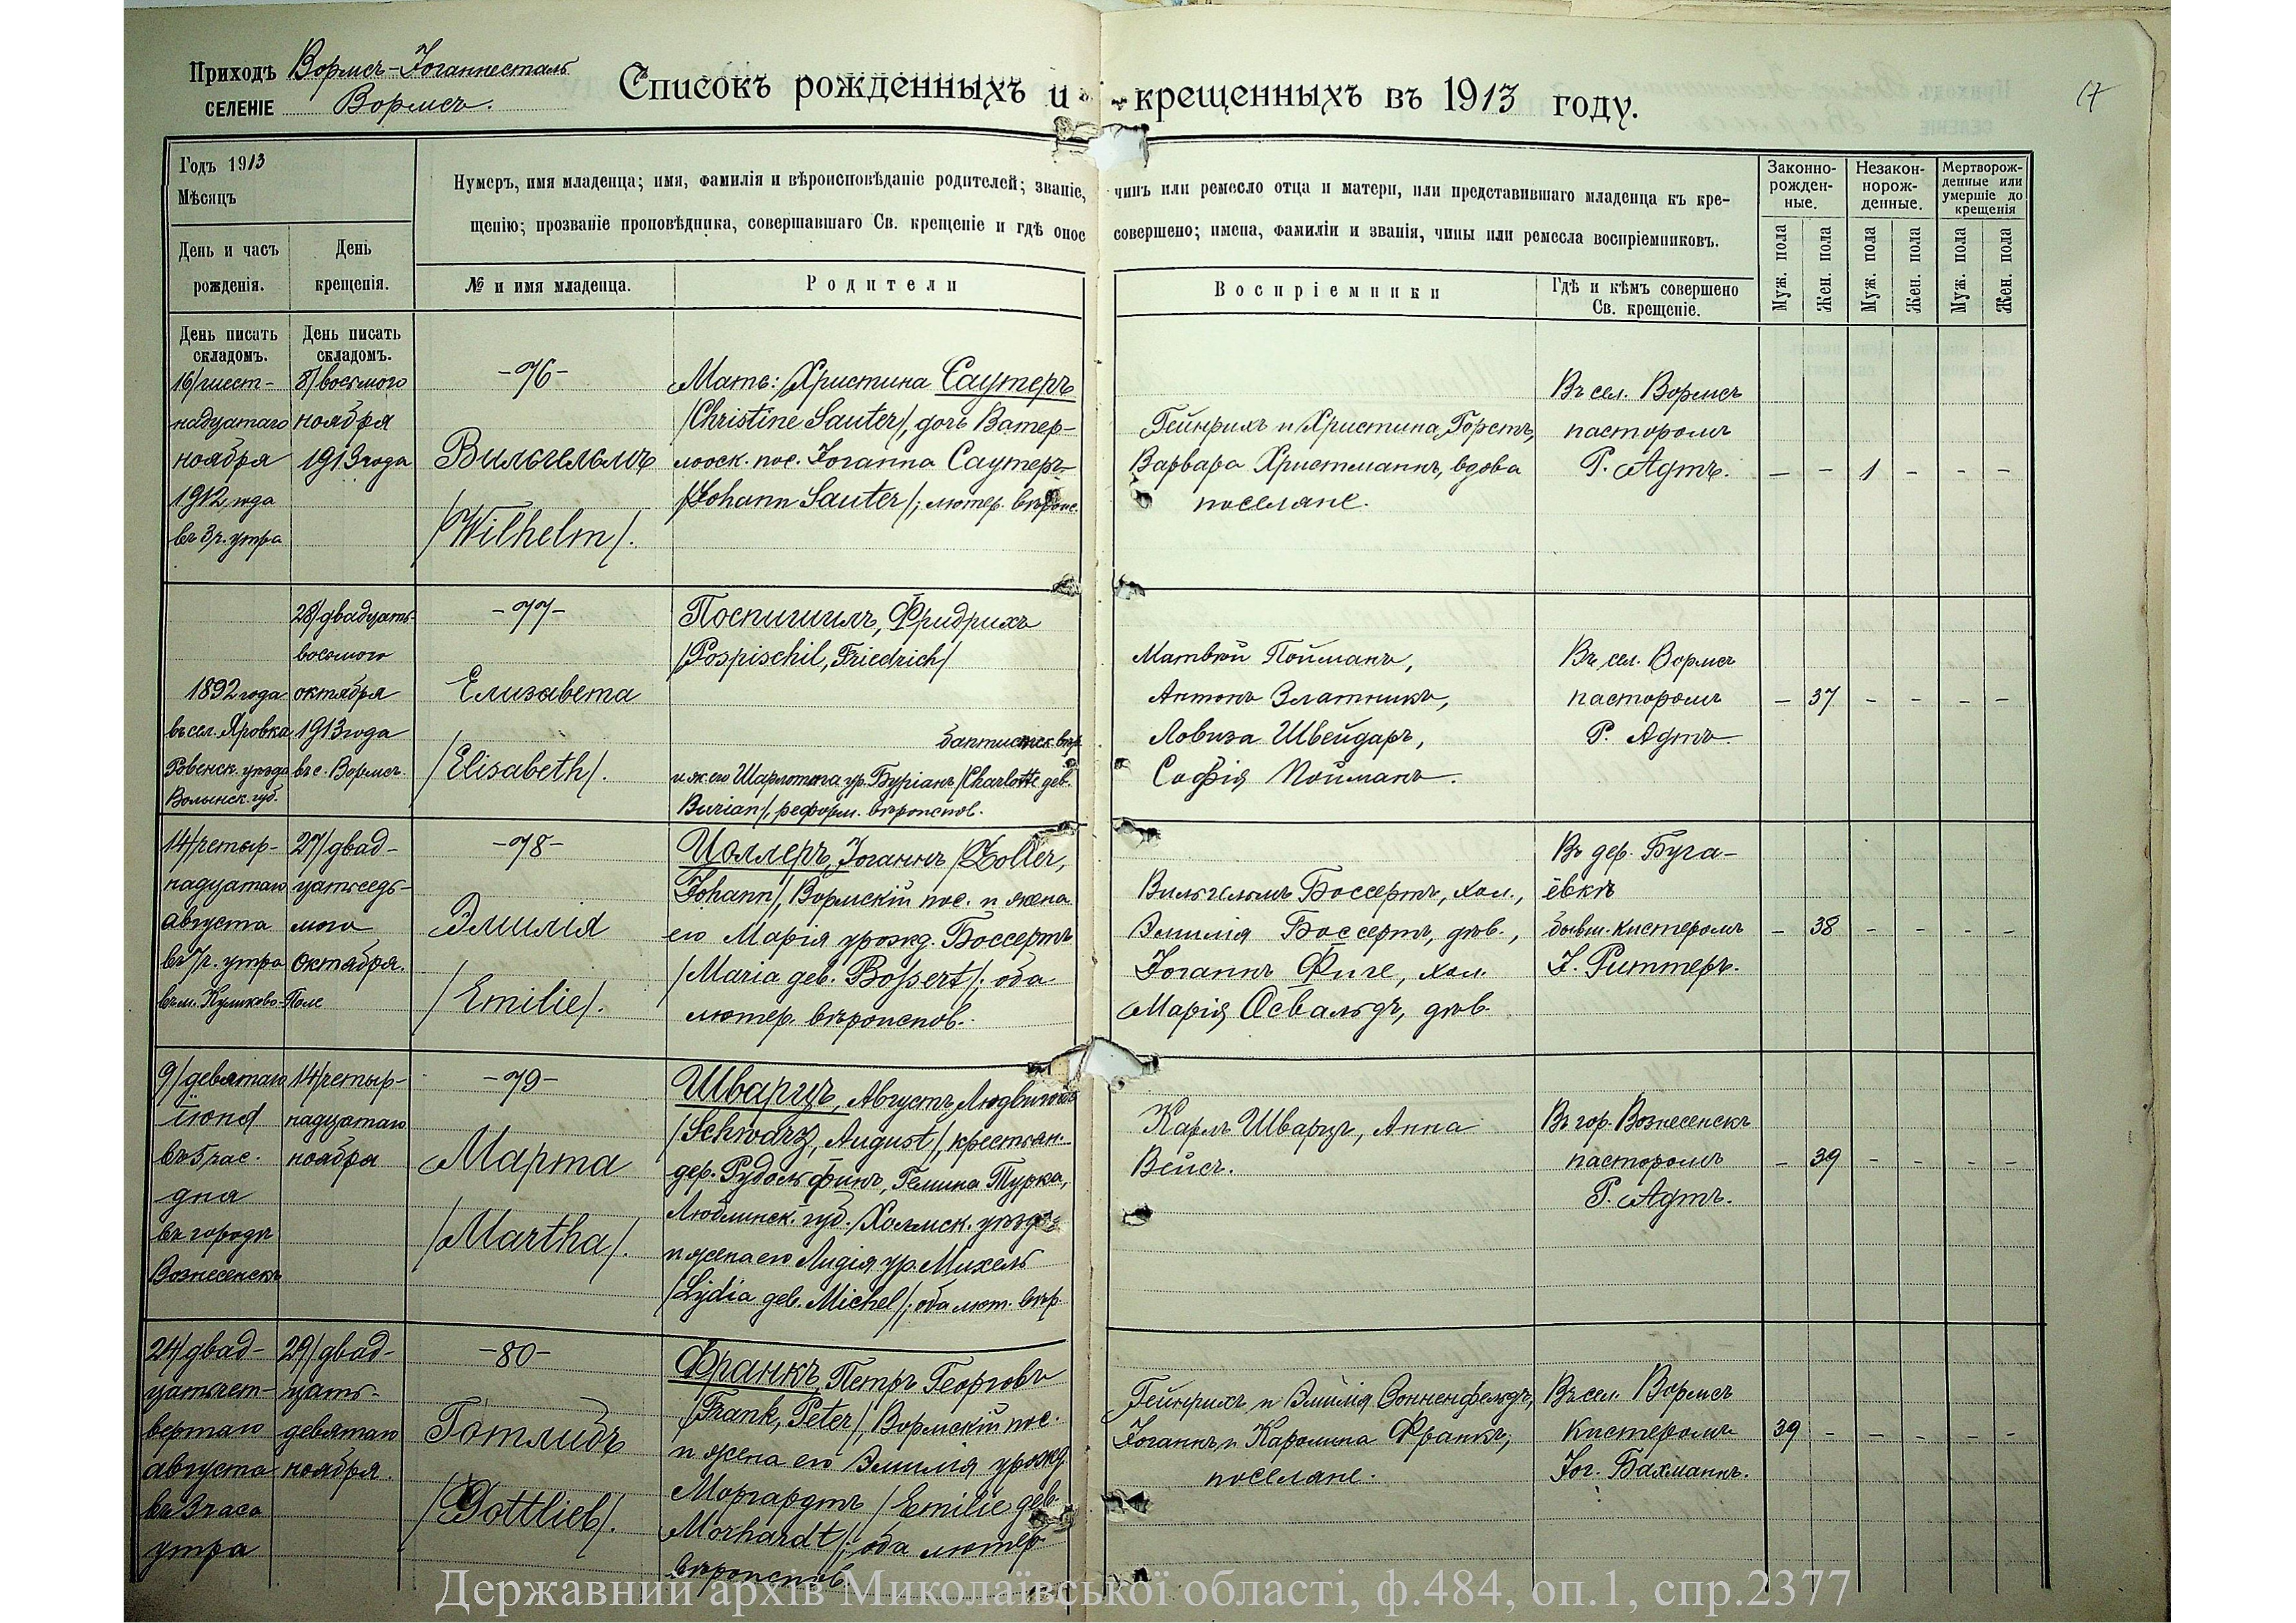 Приходъ Вормсъ-Іоганнесталь
СЕЛЕНІЕ Вормсъ.
Списокъ рожденныхъ и крещенныхъ въ 1913 году.
17
Годъ 1913
Мѣсяцъ
День и часъ
рожденія.
День
крещенія.
Нумеръ, имя младенца; имя, фамилія и вѣроисповѣданіе родителей; званіе, чинъ или ремесло отца и матери, или представившаго младенца къ кре-
щенію; прозваніе проповѣдника, совершавшаго Св. крещеніе и гдѣ оное совершено; имена, фамиліи и званія, чины или ремесла воспріемниковъ.
№ и имя младенца.
Родители
Воспріемники
Гдѣ и кѣмъ совершено
Св. крещеніе.
Законно-
рожден-
ные.
Незакон-
норож-
денные.
Мертворож-
денные или
умершіе до
крещенія
Муж. пола
Жен. пола
Муж. пола
Жен. пола
Муж. пола
Жен. пола
День писать
складомъ.
День писать
складомъ.
16/шест-
надцатаго
ноября
1912 года
въ 3 ч. утра
8/восьмого
ноября
1913 года
-76-
Вильгельмъ
/Wilhelm/.
Мать: Христина Саутеръ
/Christine Sauter/, дочь Ватер-
лооск. пос. Іоганна Саутеръ
/Johann Sauter/; лютер. вѣроис.
Гейнрихъ и Христина Горстъ,
Варвара Христманнъ, вдова
поселяне.
Въ сел. Вормсъ
пасторомъ
Р. Адтъ.
- - 1 - - -
1892 года
въ сел. Яровка
Ровенск. уѣзда
Волынск. губ.
28/двадцать-
восьмого
октября
1913 года
въ с. Вормсъ.
-77-
Елизавета
/Elisabeth/.
Поспишилъ, Фридрихъ
/Pospischil, Friedrich/
баптистск. вѣр.
и ж. его Шарлотта ур. Буріанъ /Charlotte geb.
Burian/, реформ. вѣроиспов.
Матвѣй Пойманъ,
Антонъ Златникъ,
Ловиза Швейдаръ,
Софія Пойманъ.
Въ сел. Вормсъ
пасторомъ
Р. Адтъ.
- 37 - - - -
14/четыр-
надцатаго
августа
въ 7 ч. утра
въ м. Куликово-Поле
27/двад-
цатьседь-
мого
октября.
-78-
Эмилія
/Emilie/.
Цоллеръ, Іоганнъ /Zoller,
Johann/, Вормскій пос. и жена
его Марія урожд. Боссертъ
/Maria geb. Boßert/; оба
лютер. вѣроиспов.
Вильгельмъ Боссертъ, хол.,
Эмилія Боссертъ, дѣв.,
Іоганнъ Фиге, хол.
Марія Освальдъ, дѣв.
Въ дер. Буга-
ёвкѣ
бывш. кистеромъ
І. Риттеръ.
- 38 - - - -
9/девятаго
іюня
въ 5 час.
дня
въ городѣ
Вознесенскъ
14/четыр-
надцатаго
ноября
-79-
Марта
/Martha/.
Шварцъ, Августъ Людвиговъ
/Schwarz, August/, крестьян.
дер. Рудольфинъ, Гмина Турка,
Люблинск. губ. Холмск. уѣзда
и жена его Лидія ур. Михель
/Lydia geb. Michel/; оба лют. вѣр.
Карлъ Шварцъ, Анна
Вейсъ.
Въ гор. Вознесенскѣ
пасторомъ
Р. Адтъ.
- 39 - - - -
24/двад-
цатьчет-
вертаго
августа
въ 3 часа
утра
29/двад-
цать-
девятаго
ноября.
-80-
Готлибъ
/Gottlieb/.
Франкъ, Петръ Георговъ
/Frank, Peter/, Вормскій пос.
и жена его Эмилія урожд.
Моргардтъ /Emilie geb.
Morhardt/; оба лютер.
вѣроиспов.
Гейнрихъ и Эмилія Зонненфельдъ,
Іоганнъ и Каролина Франкъ;
поселяне.
Въ сел. Вормсъ
Кистеромъ
Іог. Бахманнъ.
39 - - - - -
Державний архів Миколаївської області, ф.484, оп.1, спр.2377